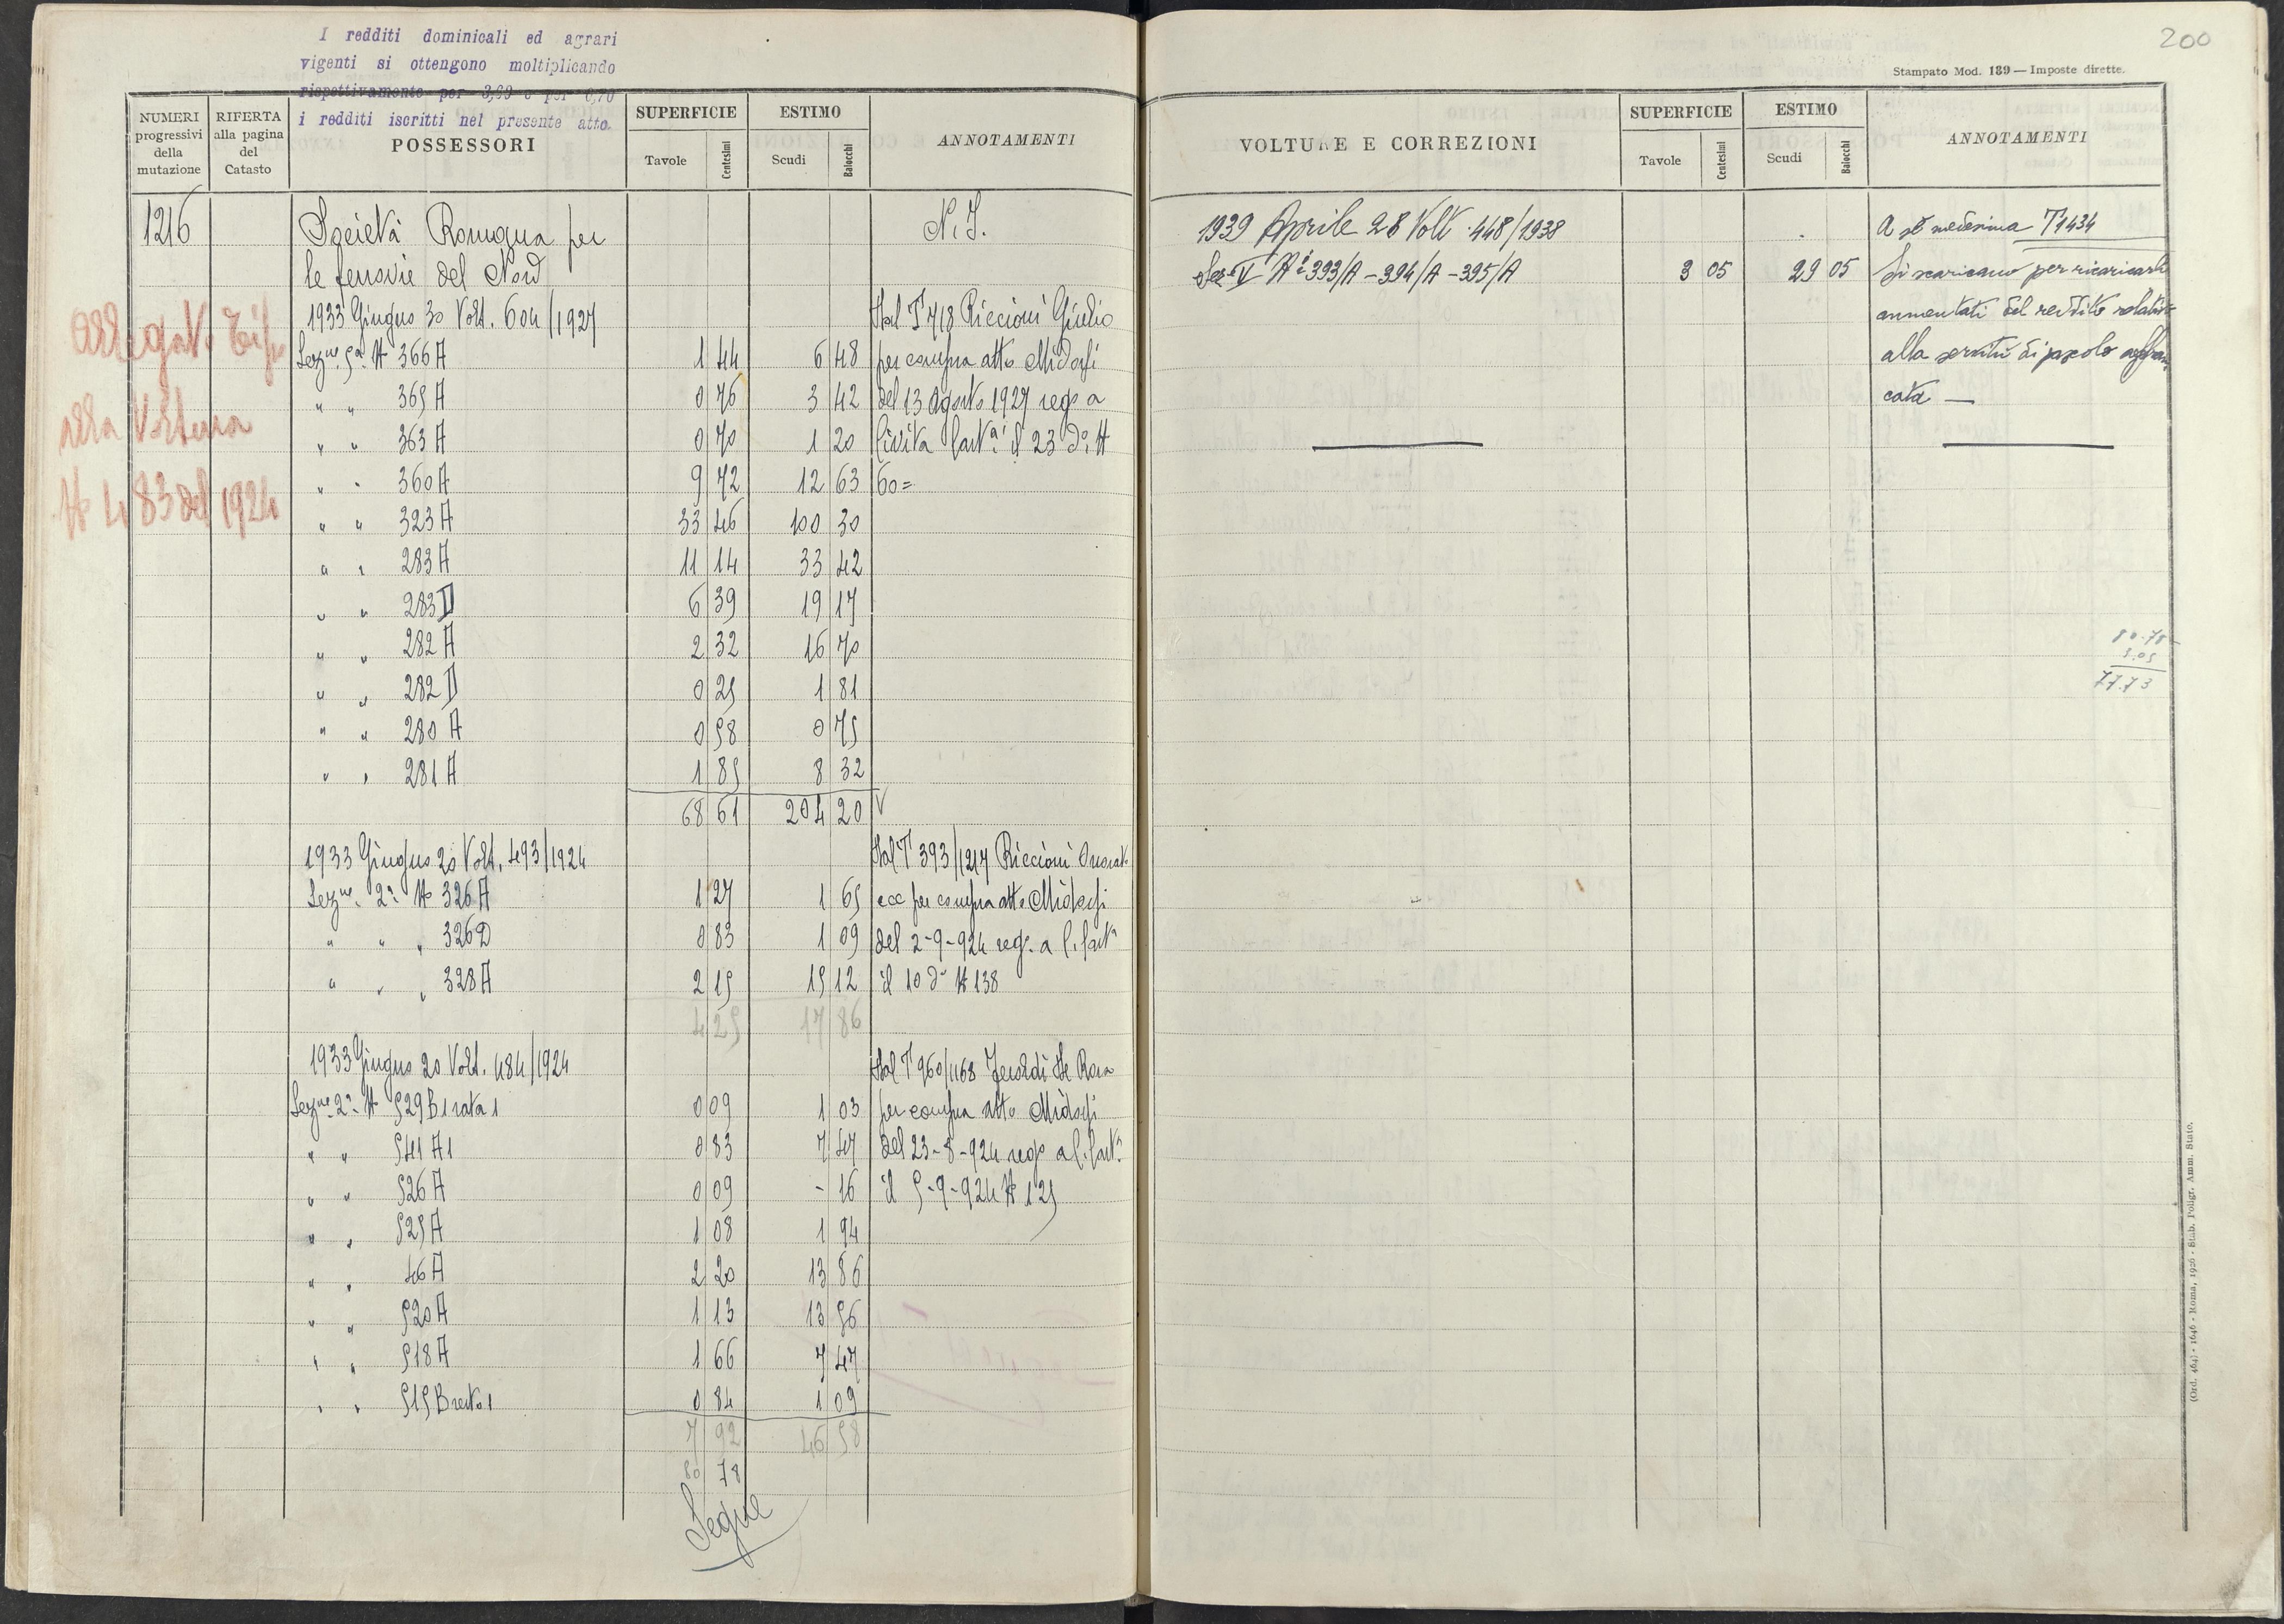 200
Stampato Mod. 139 — Imposte dirette.
I redditi dominicali ed agrari
vigenti si ottengono moltiplicando
rispettivamente per 3,69 e per 0,70
i redditi iscritti nel presente atto.
NUMERI progressivi della mutazione
RIFERTA alla pagina del Catasto
POSSESSORI
SUPERFICIE
Tavole Centesimi
ESTIMO
Scudi Baiocchi
ANNOTAMENTI
1216 Società Romana per N. I.
le ferrovie del Nord
1933 Giugno 30 Volt. 604/1927 Dal T 718 Riccioni Giulio
Sezne 5a N 366 A 1 44 6 48 per compra atto
" " 365 A 0 76 3 42 del 13 Agosto 1927 rego a
" " 363 A 0 70 1 20 Civita Casta il 23 do N
" " 360 A 9 72 12 63 60 =
" " 323 A 33 46 100 30
" " 283 A 11 14 33 42
" " 283 D 6 39 19 17
" " 282 A 2 32 16 70
" " 282 D 0 25 1 81
" " 280 A 0 58 0 75
" " 281 A 1 85 8 32
68 61 204 20 V
1933 Giugno 20 Volt. 493/1924 Dal T 393/1217 Riccioni
Sezne 2a N 326 A 1 27 1 65 ecc per compra atto
" " " 326 D 0 83 1 09 del 2-9-924 reg. a C. Casta
" " " 328 A 2 15 15 12 il 10 do N 138
4 25 17 86
1933 Giugno 20 Volt. 484/1924 Dal T 960/1168
Sezne 2a N 529 B 1 rata 1 0 09 1 03 per compra atto
" " 541 A1 0 83 7 47 del 23-8-924 rego a C. Casta
" " 526 A 0 09 - 16 il 5-9-924 N 125
" " 525 A 1 08 1 94
" " 46 A 2 20 13 86
" " 520 A 1 13 13 56
" " 518 A 1 66 7 47
" " 515 B 0 84 1 09
7 92 46 58
80 78
Segue
alla Voltura
N 483 del 1924
VOLTURE E CORREZIONI
SUPERFICIE
Tavole Centesimi
ESTIMO
Scudi Baiocchi
ANNOTAMENTI
1939 Aprile 28 Volt. 448/1938 A sé medesima T 1434
Sez V Ni 393/A - 394/A - 395/A 3 05 29 05 Si scaricano per ricaricarli
aumentati del reddito relativo
alla servitù di pascolo affran
cata —
80.78
3.05
77.73
(Ord. 464) - 1646 - Roma, 1926 - Stab. Poligr. Amm. Stato.